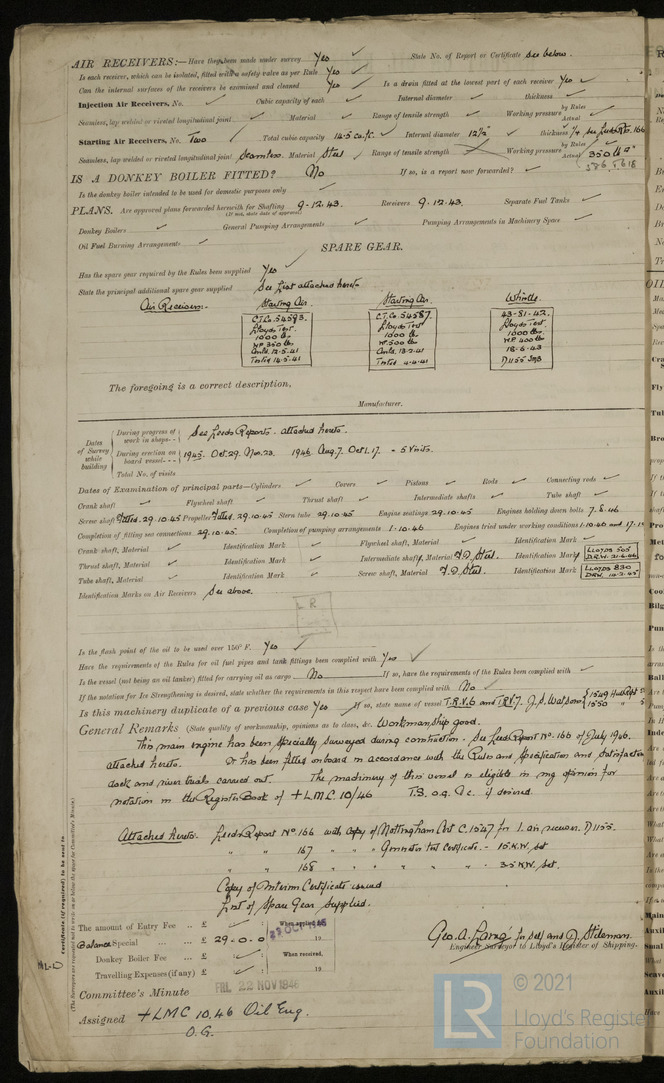 AIR RECEIVERS:—Have they been made under survey Yes ✓ State No. of Report or Certificate See below.
Is each receiver, which can be isolated, fitted with a safety valve as per Rule Yes ✓
Can the internal surfaces of the receivers be examined and cleaned Yes ✓ Is a drain fitted at the lowest part of each receiver Yes ✓
Injection Air Receivers, No. ✓ Cubic capacity of each ✓ Internal diameter ✓ thickness ✓
Seamless, lap welded or riveted longitudinal joint ✓ Material ✓ Range of tensile strength ✓ Working pressure by Rules Actual
Starting Air Receivers, No. Two Total cubic capacity 14.5 cu.ft. ✓ Internal diameter 12½" thickness
Seamless, lap welded or riveted longitudinal joint Seamless Material Steel Range of tensile strength Working pressure by Rules Actual 350
IS A DONKEY BOILER FITTED? No If so, is a report now forwarded? ✓
Is the donkey boiler intended to be used for domestic purposes only ✓
PLANS. Are approved plans forwarded herewith for Shafting 9.12.43. Receivers 9.12.43. Separate Fuel Tanks ✓
(If not, state date of approval)
Donkey Boilers ✓ General Pumping Arrangements ✓ Pumping Arrangements in Machinery Space ✓
Oil Fuel Burning Arrangements ✓
SPARE GEAR.
Has the spare gear required by the Rules been supplied Yes ✓
State the principal additional spare gear supplied See List attached hereto
Air Receivers. Starting Air Starting Air. Whistle
C.T.Co. 54593. C.T.Co. 54587. 43-81-42.
Lloyds Test Lloyds Test Lloyds Test.
1000 lbs 1000 lbs 1000 lbs.
WP 350 lbs WP. 500 lbs WP 400 lbs
18-6-43
Tested Tested 4-4-41 D1155
The foregoing is a correct description,
Manufacturer.
Dates of Survey while building
During progress of work in shops-- See Leeds Reports attached hereto.
During erection on board vessel--- 1945. Oct. 29. Nov. 23. 1946 Aug. 7. Oct. 1. 17. - 5 Visits.
Total No. of visits
Dates of Examination of principal parts—Cylinders ✓ Covers ✓ Pistons ✓ Rods ✓ Connecting rods ✓
Crank shaft ✓ Flywheel shaft ✓ Thrust shaft ✓ Intermediate shafts ✓ Tube shaft ✓
Screw shaft Fitted. 29.10.45 Propeller Fitted. 29.10.45 Stern tube 29.10.45 Engine seatings 29.10.45 Engines holding down bolts 7.8.46
Completion of fitting sea connections 29.10.45 Completion of pumping arrangements 1.10.46 Engines tried under working conditions 1.10.46 and 17.1
Crank shaft, Material ✓ Identification Mark ✓ Flywheel shaft, Material ✓ Identification Mark ✓
Thrust shaft, Material ✓ Identification Mark ✓ Intermediate shafts, Material F.D. Steel. Identification Marks LLOYDS 505
Tube shaft, Material ✓ Identification Mark ✓ Screw shaft, Material F.D. Steel. Identification Mark LLOYDS 830
Identification Marks on Air Receivers See above.
LR
Is the flash point of the oil to be used over 150° F. Yes ✓
Have the requirements of the Rules for oil fuel pipes and tank fittings been complied with Yes ✓
Is the vessel (not being an oil tanker) fitted for carrying oil as cargo No If so, have the requirements of the Rules been complied with ✓
If the notation for Ice Strengthening is desired, state whether the requirements in this respect have been complied with No ✓
Is this machinery duplicate of a previous case Yes If so, state name of vessel T.R.V.6 and T.R.V.7. J.S. Watson 1549 1550
General Remarks (State quality of workmanship, opinions as to class, &c. Workmanship good.
This main engine has been specially surveyed during construction. See Leeds Report No. 166 of July 1946.
attached hereto. It has been fitted onboard in accordance with the Rules and Specification and satisfactory
dock and river trials carried out. The machinery of this vessel is eligible in my opinion for
notation in the Register Book of +LMC 10/46 T.S. O.G. &c. if desired
Attached hereto. Leeds Report No. 166 with copy of Nottingham Cert C.1547 for 1. air receiver. D1155.
" " 167 " " Generator test Certificate.- 15 K.W. set
" " 168 " " " " " - 35 K.W. set.
Copy of Interim Certificate issued
List of Spare Gear supplied.
Certificate (if required) to be sent to
(The Surveyors are requested not to write on or below the space for Committee's Minute.)
The amount of Entry Fee .. £ : : When applied for
Balance Special ... ... £ 29.0.0 29 OCT 1946 19
Donkey Boiler Fee ... £ ✓ : When received,
Travelling Expenses (if any) £ ✓ : 19
Geo. A. Laing for self and D. Stileman.
Engineer Surveyor to Lloyd's Register of Shipping.
Committee's Minute FRI. 22 NOV 1946
Assigned +LMC 10.46 Oil Eng.
O.G.
© 2021
LR
Lloyd's Register
Foundation